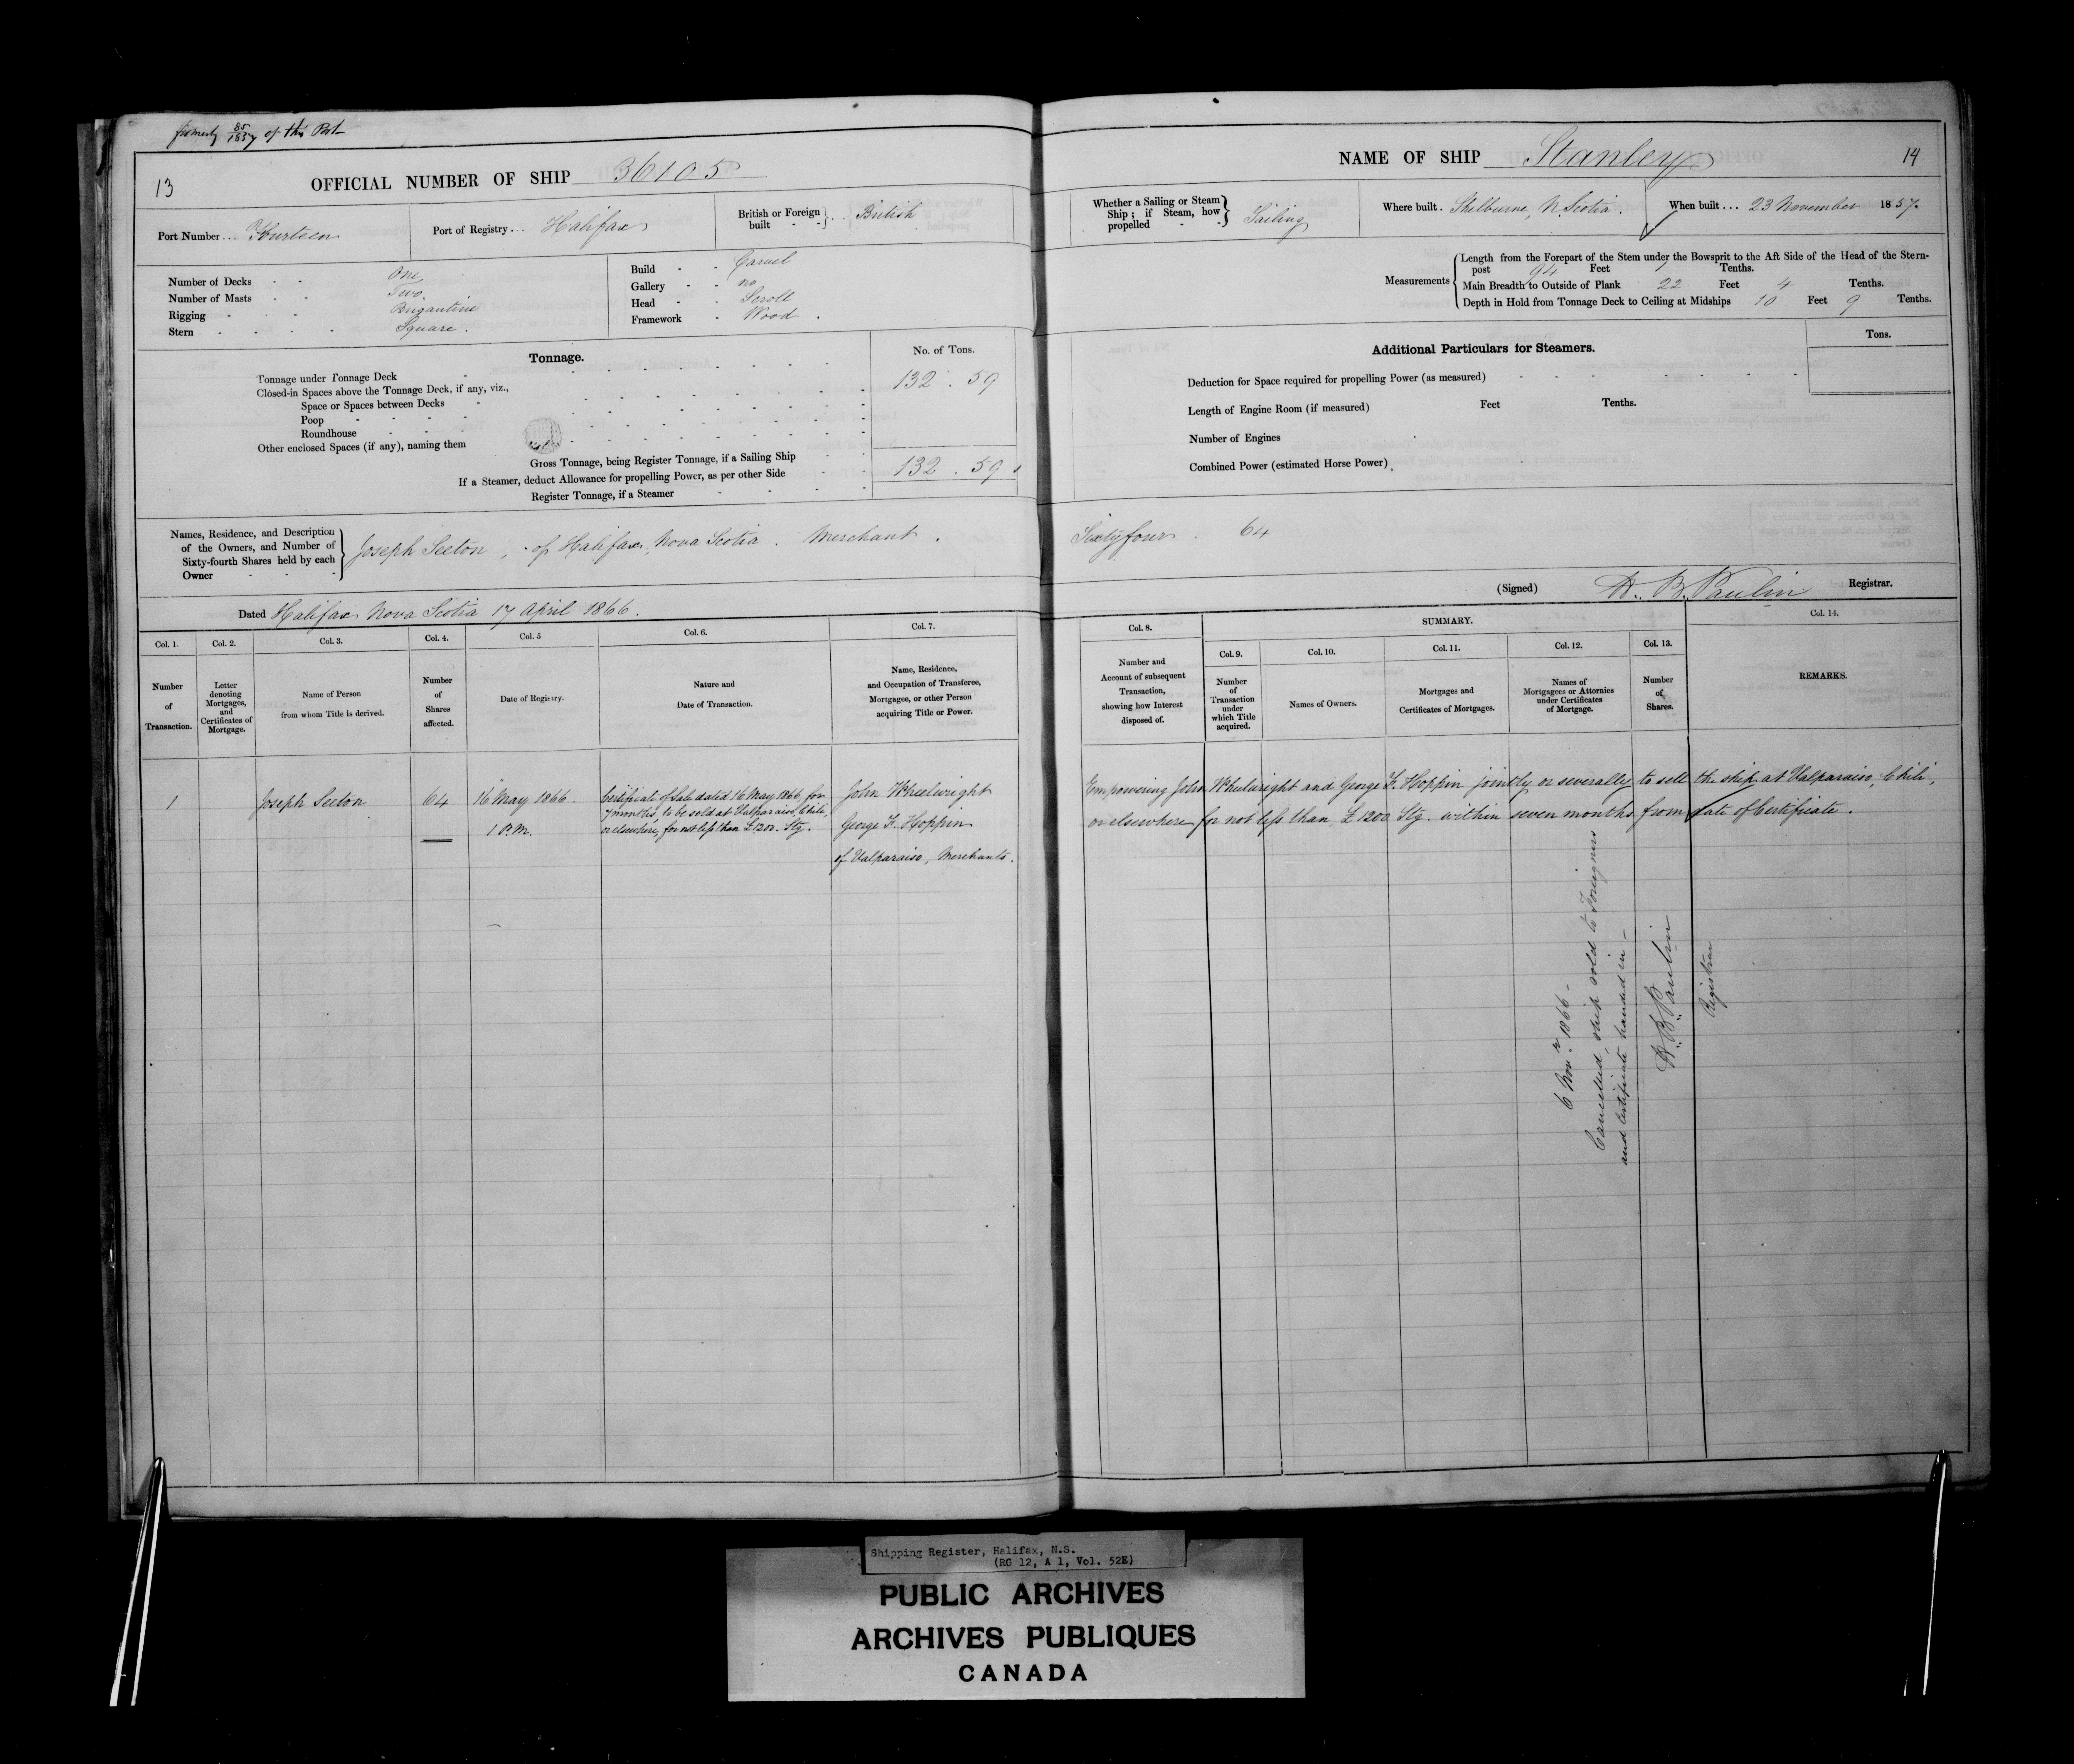 formerly 85/1857 of this Port
13
OFFICIAL NUMBER OF SHIP 36105
Port Number... Fourteen
Port of Registry... Halifax
British or Foreign built British
Number of Decks One
Number of Masts Two
Rigging Brigantine
Stern Square.
Build Carvel
Gallery no
Head Scroll
Framework Wood.
Tonnage.
No. of Tons.
Tonnage under Tonnage Deck 132.59
Closed-in Spaces above the Tonnage Deck, if any, viz.,
Space or Spaces between Decks
Poop
Roundhouse
Other enclosed Spaces (if any), naming them
Gross Tonnage, being Register Tonnage, if a Sailing Ship 132.59
If a Steamer, deduct Allowance for propelling Power, as per other Side
Register Tonnage, if a Steamer
Names, Residence, and Description
of the Owners, and Number of
Sixty-fourth Shares held by each
Owner
Joseph Seeton, of Halifax, Nova Scotia. Merchant.
Dated Halifax Nova Scotia 17 April 1866.
Col. 1.
Number of Transaction.
Col. 2.
Letter denoting Mortgages, and Certificates of Mortgage.
Col. 3.
Name of Person from whom Title is derived.
Col. 4.
Number of Shares affected.
Col. 5
Date of Registry.
Col. 6.
Nature and Date of Transaction.
Col. 7.
Name, Residence, and Occupation of Transferee, Mortgagee, or other Person acquiring Title or Power.
1
Joseph Seeton
64
16 May 1866.
1 P.M.
Certificate of Sale dated 16 May 1866 for
7 months, to be sold at Valparaiso, Chili,
or elsewhere, for not less than £1200. Stg.
John Wheelwright
George F. Hoppin
of Valparaiso, Merchants.
NAME OF SHIP Stanley
14
Whether a Sailing or Steam Ship; if Steam, how propelled Sailing
Where built. Shelburne, N. Scotia.
When built... 23 November 1857.
Measurements
Length from the Forepart of the Stem under the Bowsprit to the Aft Side of the Head of the Stern-
post 94 Feet 7 Tenths.
Main Breadth to Outside of Plank 22 Feet 4 Tenths.
Depth in Hold from Tonnage Deck to Ceiling at Midships 10 Feet 9 Tenths.
Additional Particulars for Steamers.
Tons.
Deduction for Space required for propelling Power (as measured)
Length of Engine Room (if measured) Feet Tenths.
Number of Engines
Combined Power (estimated Horse Power)
Sixty four. 64
(Signed) H. B. Paulin Registrar.
Col. 8.
Number and Account of subsequent Transaction, showing how Interest disposed of.
SUMMARY.
Col. 9.
Number of Transaction under which Title acquired.
Col. 10.
Names of Owners.
Col. 11.
Mortgages and Certificates of Mortgages.
Col. 12.
Names of Mortgagees or Attornies under Certificates of Mortgage.
Col. 13.
Number of Shares.
Col. 14.
REMARKS.
Empowering John Wheelwright and George F. Hoppin jointly or severally to sell the ship at Valparaiso, Chili,
or elsewhere for not less than £1200 Stg. within seven months from date of Certificate.
6 Novr. 1866 -
Cancelled, ship sold to Foreigners
and Certificate handed in -
H. B. Paulin
Registrar
Shipping Register, Halifax, N.S.
(RG 12, A 1, Vol. 52E)
PUBLIC ARCHIVES
ARCHIVES PUBLIQUES
CANADA